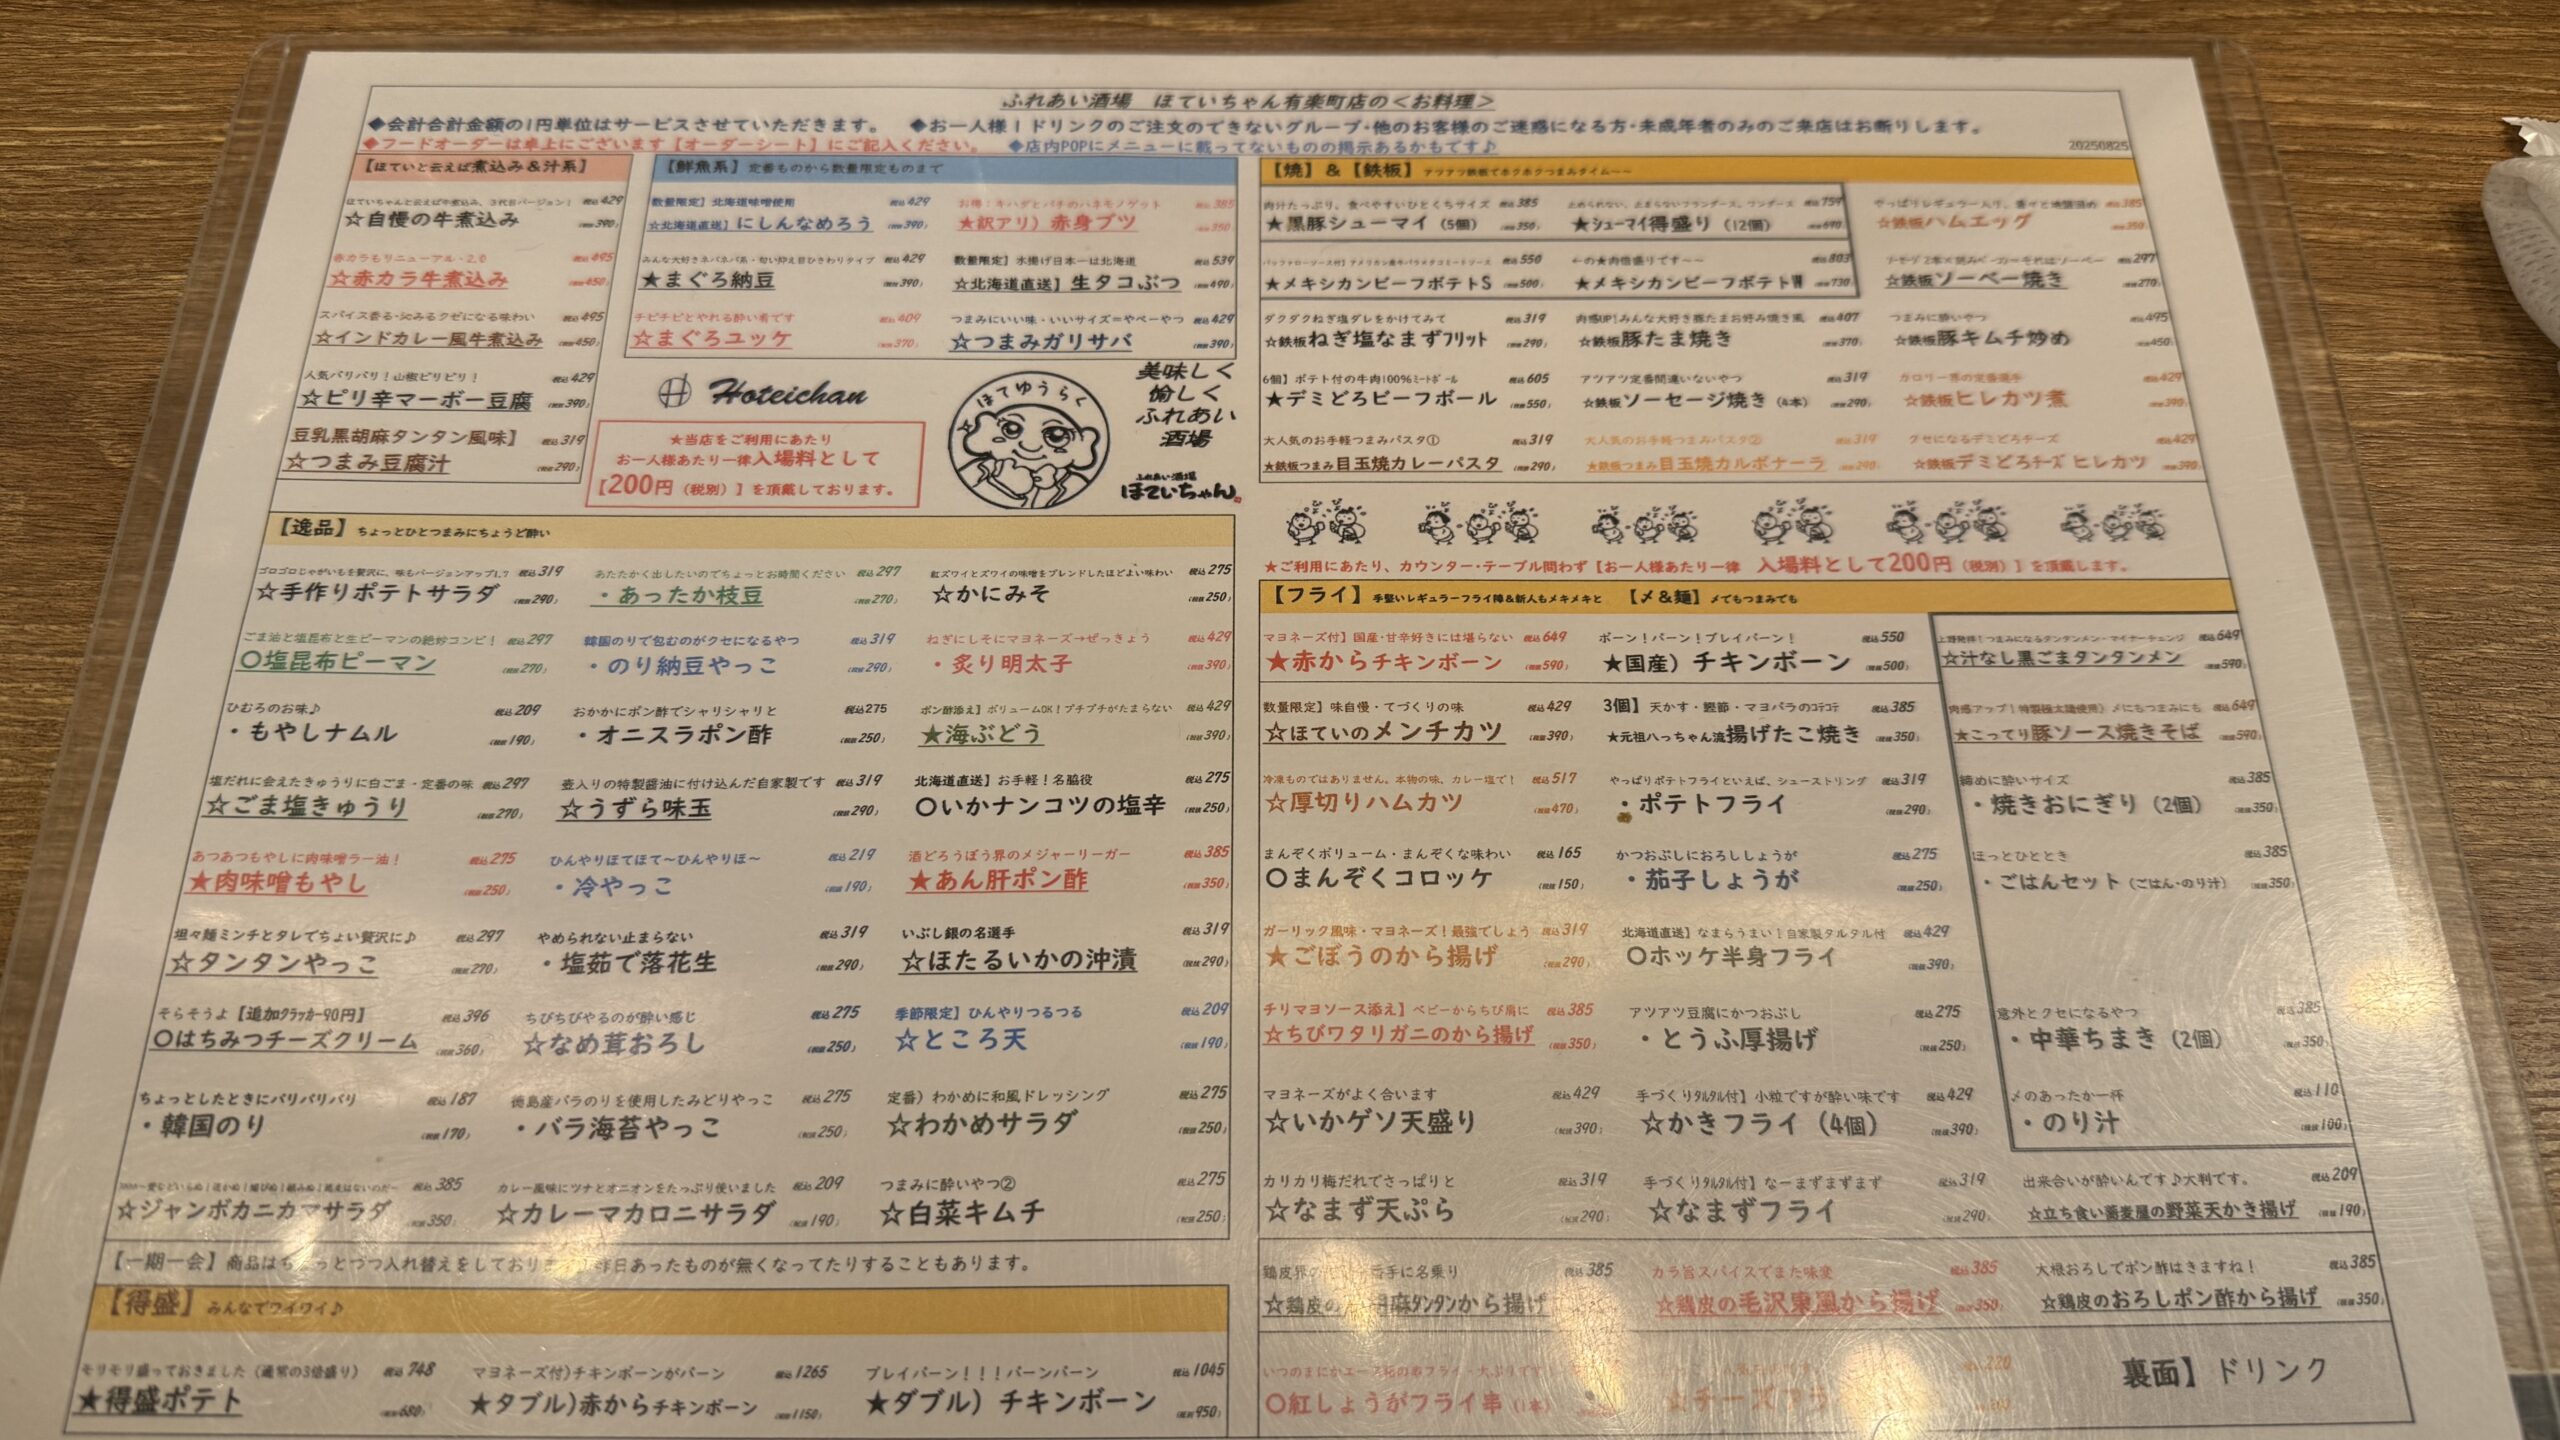 ふれあい酒場　ほていちゃん有楽町店の＜お料理＞
◆会計合計金額の1円単位はサービスさせていただきます。　◆お一人様1ドリンクのご注文のできないグループ・他のお客様のご迷惑になる方・未成年者のみのご来店はお断りします。
◆フードオーダーは卓上にございます【オーダーシート】にご記入ください。　◆店内POPにメニューに載ってないものの掲示あるかもです♪
20250825
【ほていと云えば煮込み＆汁系】
ほていちゃんと云えば牛煮込み、3代目バージョン！ 税込429
☆自慢の牛煮込み (税抜390)
赤カラもリニューアル・2.0 税込495
☆赤カラ牛煮込み (税抜450)
スパイス香る・沁みるクセになる味わい 税込495
☆インドカレー風牛煮込み (税抜450)
人気バリバリ！山椒ビリビリ！ 税込429
☆ピリ辛マーボー豆腐 (税抜390)
豆乳黒胡麻タンタン風味】 税込319
☆つまみ豆腐汁 (税抜290)
【鮮魚系】定番ものから数量限定ものまで
数量限定】北海道味噌使用 税込429
☆北海道直送】にしんなめろう (税抜390)
お得！キハダとバチのハネモノゲット 税込385
★訳アリ）赤身ブツ (税抜350)
みんな大好きネバネバ系・匂い抑え目ひきわりタイプ 税込429
★まぐろ納豆 (税抜390)
数量限定】水揚げ日本一は北海道 税込539
☆北海道直送】生タコぶつ (税抜490)
チビチビとやれる酔い肴です 税込409
☆まぐろユッケ (税抜370)
つまみにいい味・いいサイズ＝やべーやつ 税込429
☆つまみガリサバ (税抜390)
Hoteichan
★当店をご利用にあたり
お一人様あたり一律入場料として
【200円（税別）】を頂戴しております。
ほてゆうらく
美味しく
愉しく
ふれあい
酒場
ふれあい酒場
ほていちゃん
【逸品】ちょっとひとつまみにちょうど酔い
ゴロゴロじゃがいもを贅沢に、味もバージョンアップ1.7 税込319
☆手作りポテトサラダ (税抜290)
あたたかく出したいのでちょっとお時間ください 税込297
・あったか枝豆 (税抜270)
紅ズワイとズワイの味噌をブレンドしたほどよい味わい 税込275
☆かにみそ (税抜250)
ごま油と塩昆布と生ピーマンの絶妙コンビ！ 税込297
〇塩昆布ピーマン (税抜270)
韓国のりで包むのがクセになるやつ 税込319
・のり納豆やっこ (税抜290)
ねぎにしそにマヨネーズ→ぜっきょう 税込429
・炙り明太子 (税抜390)
ひむろのお味♪ 税込209
・もやしナムル (税抜190)
おかかにポン酢でシャリシャリと 税込275
・オニスラポン酢 (税抜250)
ポン酢添え】ボリュームOK！プチプチがたまらない 税込429
★海ぶどう (税抜390)
塩だれに会えたきゅうりに白ごま・定番の味 税込297
☆ごま塩きゅうり (税抜270)
壺入りの特製醤油に付け込んだ自家製です 税込319
☆うずら味玉 (税抜290)
北海道直送】お手軽！名脇役 税込275
〇いかナンコツの塩辛 (税抜250)
あつあつもやしに肉味噌ラー油！ 税込275
★肉味噌もやし (税抜250)
ひんやりほてほて～ひんやりほ～ 税込219
・冷やっこ (税抜190)
酒どろうぼう界のメジャーリーガー 税込385
★あん肝ポン酢 (税抜350)
坦々麺ミンチとタレでちょい贅沢に♪ 税込297
☆タンタンやっこ (税抜270)
やめられない止まらない 税込319
・塩茹で落花生 (税抜290)
いぶし銀の名選手 税込319
☆ほたるいかの沖漬 (税抜290)
そらそうよ【追加クラッカー90円】 税込396
〇はちみつチーズクリーム (税抜360)
ちびちびやるのが酔い感じ 税込275
☆なめ茸おろし (税抜250)
季節限定】ひんやりつるつる 税込209
☆ところ天 (税抜190)
ちょっとしたときにパリパリパリ 税込187
・韓国のり (税抜170)
徳島産バラのりを使用したみどりやっこ 税込275
・バラ海苔やっこ (税抜250)
定番）わかめに和風ドレッシング 税込275
☆わかめサラダ (税抜250)
税込385
☆ジャンボカニカマサラダ (税抜350)
カレー風味にツナとオニオンをたっぷり使いました 税込209
☆カレーマカロニサラダ (税抜190)
つまみに酔いやつ② 税込275
☆白菜キムチ (税抜250)
【一期一会】商品はちょっとづつ入れ替えをしており 昨日あったものが無くなってたりすることもあります。
【得盛】みんなでワイワイ♪
モリモリ盛っておきました（通常の3倍盛り） 税込748
★得盛ポテト (税抜680)
マヨネーズ付)チキンボーンがバーン 税込1265
★タブル)赤からチキンボーン (税抜1150)
ブレイバーン！！！バーンバーン 税込1045
★ダブル）チキンボーン (税抜950)
【焼】＆【鉄板】アツアツ鉄板でホクホクつまみタイム～～
肉汁たっぷり、食べやすいひとくちサイズ 税込385
★黒豚シューマイ（5個） (税抜350)
税込759
★シューマイ得盛り（12個） (税抜690)
やっぱりレギュラー入り、香りと地講固め 税込385
☆鉄板ハムエッグ (税抜350)
税込550
★メキシカンビーフポテトS (税抜500)
←の★肉倍盛りです～～ 税込803
★メキシカンビーフポテトW (税抜730)
税込297
☆鉄板ソーベー焼き (税抜270)
ダクダクねぎ塩ダレをかけてみて 税込319
☆鉄板ねぎ塩なまずフリット (税抜290)
肉感UP！みんな大好き豚たまお好み焼き風 税込407
☆鉄板豚たま焼き (税抜370)
つまみに酔いやつ 税込495
☆鉄板豚キムチ炒め (税抜450)
6個】ポテト付の牛肉100%ミートボール 税込605
★デミどろビーフボール (税抜550)
アツアツ定番間違いないやつ 税込319
☆鉄板ソーセージ焼き（4本） (税抜290)
カロリー界の定番選手 税込429
☆鉄板ヒレカツ煮 (税抜390)
大人気のお手軽つまみパスタ① 税込319
★鉄板つまみ目玉焼カレーパスタ (税抜290)
大人気のお手軽つまみパスタ② 税込319
★鉄板つまみ目玉焼カルボナーラ (税抜290)
クセになるデミどろチーズ 税込429
☆鉄板デミどろチーズヒレカツ (税抜390)
★ご利用にあたり、カウンター・テーブル問わず【お一人様あたり一律　入場料として200円（税別）】を頂戴します。
【フライ】手堅いレギュラーフライ陣＆新人もメキメキと　【〆＆麺】〆でもつまみでも
マヨネーズ付】国産・甘辛好きには堪らない 税込649
★赤からチキンボーン (税抜590)
ボーン！バーン！ブレイバーン！ 税込550
★国産）チキンボーン (税抜500)
上野発祥！つまみになるタンタンメン・マイナーチェンジ 税込649
☆汁なし黒ごまタンタンメン (税抜590)
数量限定】味自慢・てづくりの味 税込429
☆ほていのメンチカツ (税抜390)
3個】天かす・鰹節・マヨバラのコテコテ 税込385
★元祖ハっちゃん流揚げたこ焼き (税抜350)
肉感アップ！特製極太麺使用）〆にもつまみにも 税込649
★こってり豚ソース焼きそば (税抜590)
冷凍ものではありません。本物の味、カレー塩で！ 税込517
☆厚切りハムカツ (税抜470)
やっぱりポテトフライといえば、シューストリング 税込319
・ポテトフライ (税抜290)
締めに酔いサイズ 税込385
・焼きおにぎり（2個） (税抜350)
まんぞくボリューム・まんぞくな味わい 税込165
〇まんぞくコロッケ (税抜150)
かつおぶしにおろししょうが 税込275
・茄子しょうが (税抜250)
ほっとひととき 税込385
・ごはんセット（ごはん・のり汁） (税抜350)
ガーリック風味・マヨネーズ！最強でしょう 税込319
★ごぼうのから揚げ (税抜290)
北海道直送】なまらうまい！自家製タルタル付 税込429
〇ホッケ半身フライ (税抜390)
チリマヨソース添え】ベビーからちび肩に 税込385
☆ちびワタリガニのから揚げ (税抜350)
アツアツ豆腐にかつおぶし 税込275
・とうふ厚揚げ (税抜250)
意外とクセになるやつ 税込385
・中華ちまき（2個） (税抜350)
マヨネーズがよく合います 税込429
☆いかゲソ天盛り (税抜390)
手づくりタルタル付】小粒ですが酔い味です 税込429
☆かきフライ（4個） (税抜390)
〆のあったか一杯 税込110
・のり汁 (税抜100)
カリカリ梅だれでさっぱりと 税込319
☆なまず天ぷら (税抜290)
手づくりタルタル付】なーまずまずまず 税込319
☆なまずフライ (税抜290)
出来合いが酔いんです♪大判です。 税込209
☆立ち食い蕎麦屋の野菜天かき揚げ (税抜190)
鶏皮界の 手に名乗り 税込385
☆鶏皮の 胡麻タンタンから揚げ
カラ旨スパイスでまた味変 税込385
☆鶏皮の毛沢東風から揚げ (税抜350)
大根おろしでポン酢はきますね！ 税込385
☆鶏皮のおろしポン酢から揚げ (税抜350)
〇紅しょうがフライ串（1本）
220
☆チーズフラ
裏面】ドリンク